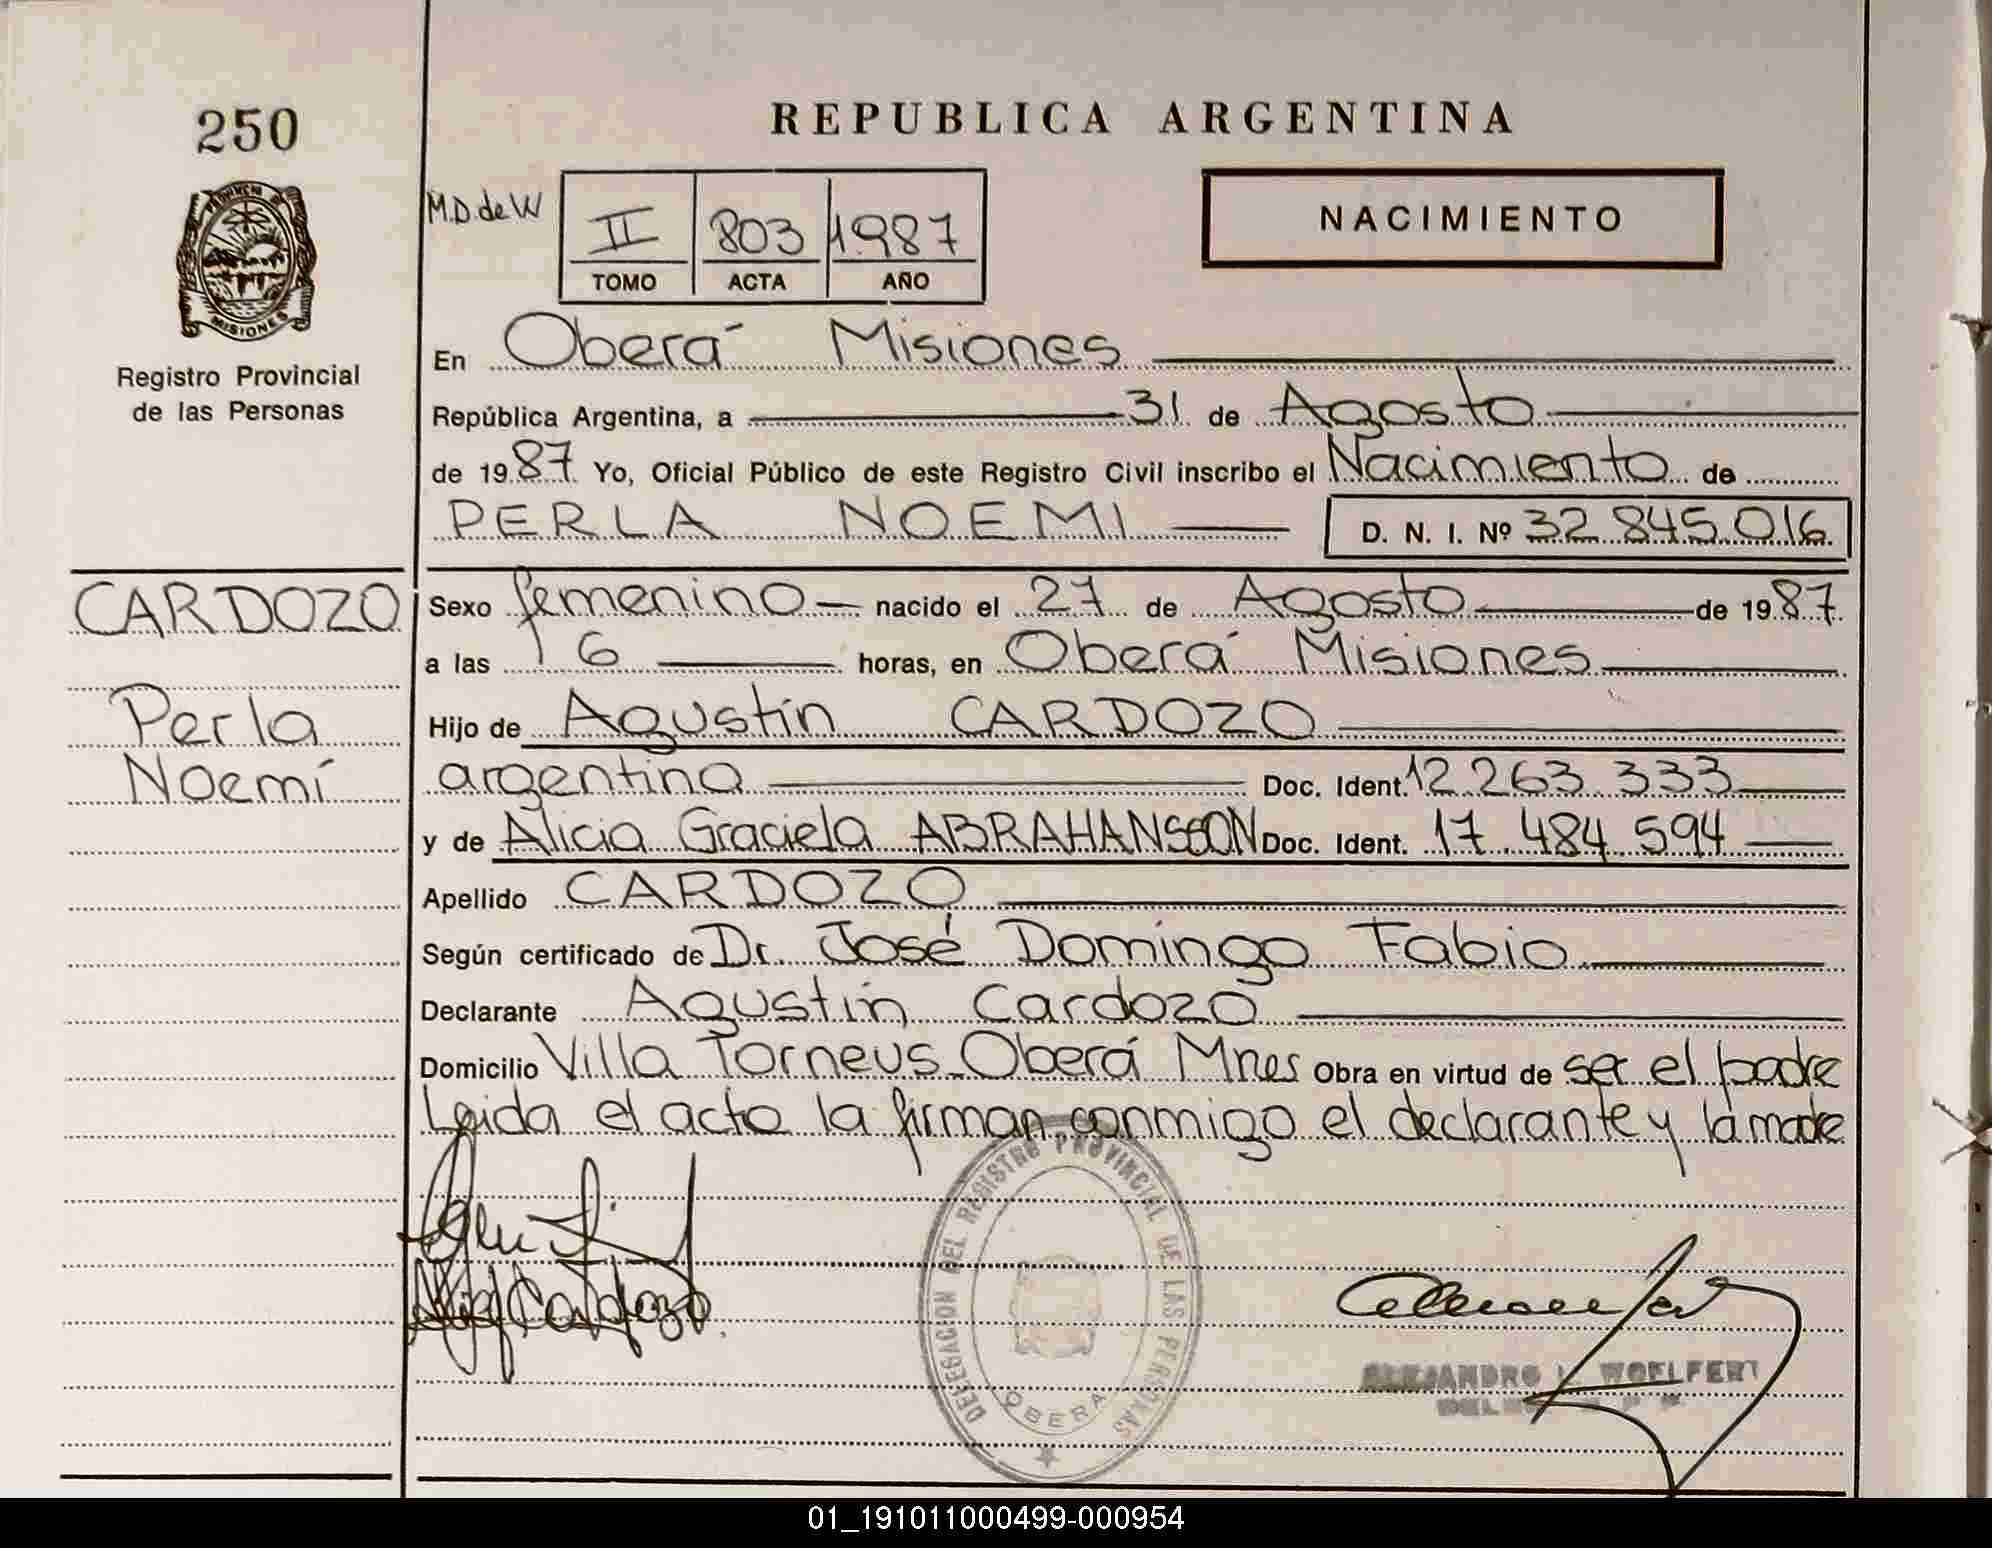 250
REPUBLICA ARGENTINA
M.D. de W
II 803 1987
TOMO ACTA AÑO
NACIMIENTO
PROVINCIA DE
MISIONES
Registro Provincial
de las Personas
En Oberá Misiones
República Argentina, a 31 de Agosto
de 1987 Yo, Oficial Público de este Registro Civil inscribo el Nacimiento de
PERLA NOEMI D. N. I. Nº 32.845.016.
CARDOZO
Perla
Noemí
Sexo femenino nacido el 27 de Agosto de 1987.
a las 16 horas, en Oberá Misiones
Hijo de Agustín CARDOZO
argentina Doc. Ident. 12.263.333
y de Alicia Graciela ABRAHANSSON Doc. Ident. 17.484.594
Apellido CARDOZO
Según certificado de Dr. José Domingo Fabio
Declarante Agustín Cardozo
Domicilio Villa Torneus Oberá Mnes Obra en virtud de ser el padre
Leida el acta la firman conmigo el declarante y la madre
DELEGACION DEL REGISTRO PROVINCIAL DE LAS PERSONAS
OBERA
ALEJANDRO WOELFERT
01_191011000499-000954